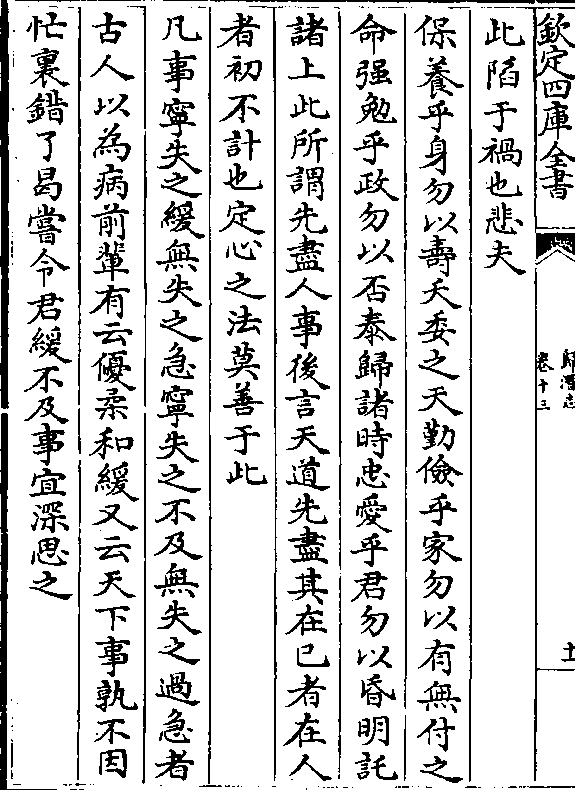 欽定四庫全書
歸潛志
卷十三
十一
此陷于禍也悲夫
保養乎身勿以壽夭委之天勤儉乎家勿以有無付之
命强勉乎政勿以否泰歸諸時忠愛乎君勿以昏明託
諸上此所謂先盡人事後言天道先盡其在已者在人
者初不計也定心之法莫善于此
凡事寧失之緩無失之急寧失之不及無失之過急者
古人以為病前輩有云優柔和緩又云天下事孰不因
忙裏錯了曷嘗令君緩不及事宜深思之